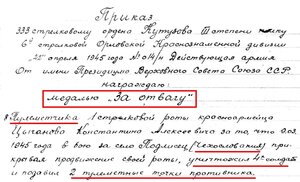 Приказ
333 стрелковому ордена Кутузова II степени полку
6й стрелковой Орловской Краснознаменной дивизии
25 апреля 1945 года №014/н Действующая армия
От имени Президиума Верховного Совета Союза ССР
награждаю:
медалью „За отвагу"
Пулеметчика 1 стрелковой роты красноармейца
Цыганова Константина Алексеевича за то, что
1945 года в бою за село (Чехословакия) при-
крывая продвижение своей роты, уничтожил 4х солдат
и подавил 2 пулеметные точки противника.